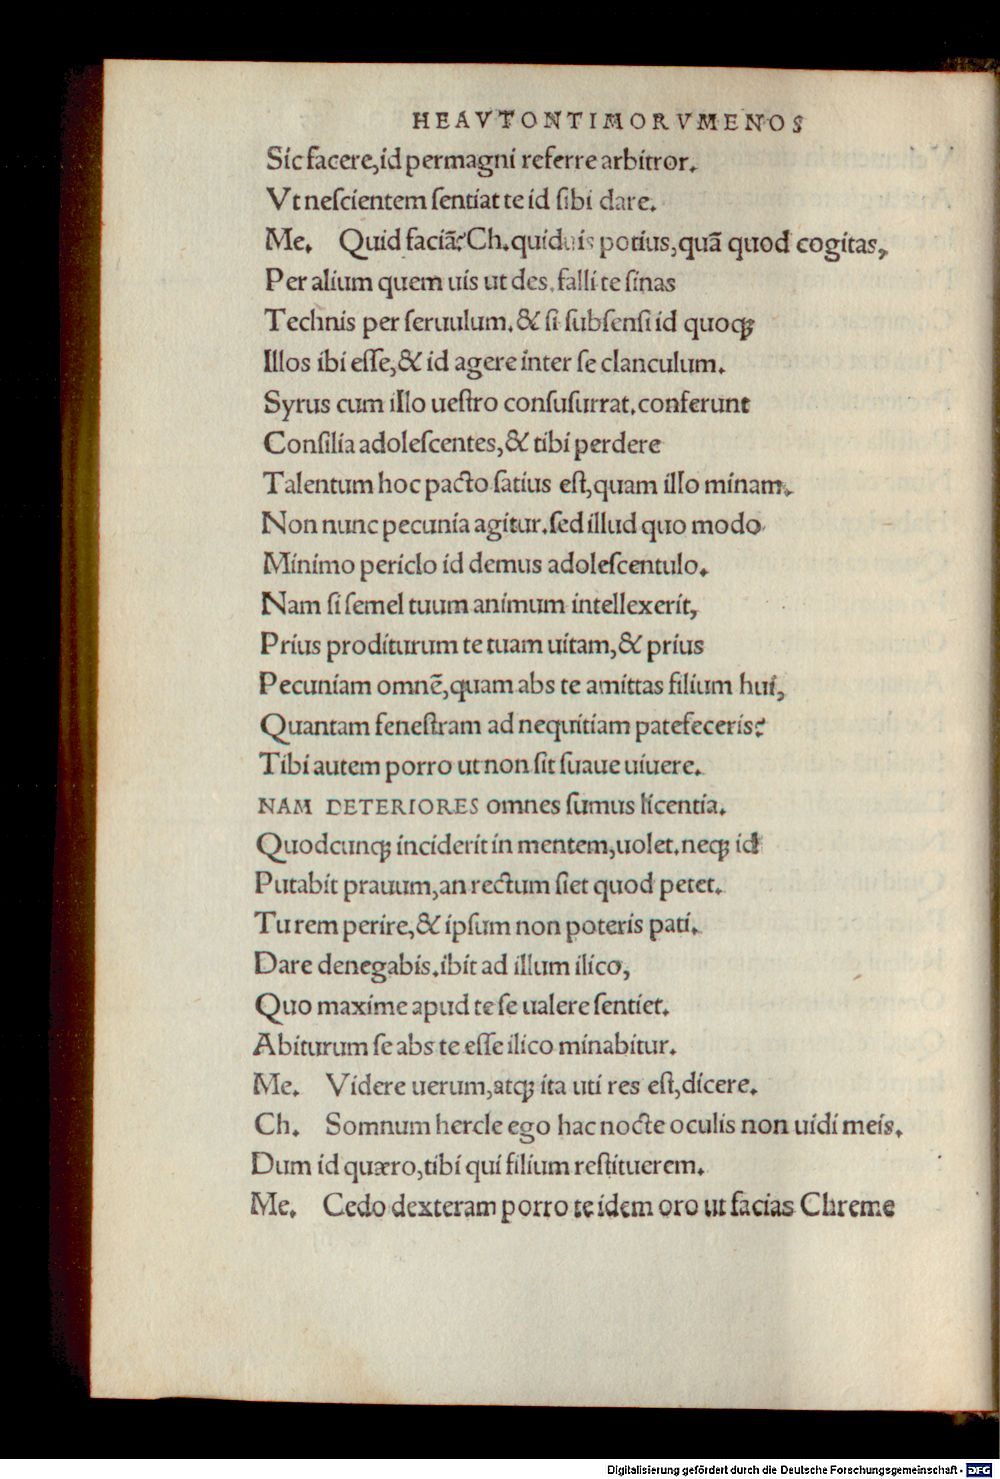 HEAVTONTIMORVMENOS
Sic facere,id permagni referre arbitror.
Vt neſcientem ſentiat te id ſibi dare.
Me. Quid faciã?Ch.quiduis potius,quã quod cogitas,
Per alium quem uis ut des,falli te ſinas
Technis per ſeruulum.& ſi ſubſenſi id quoqꝫ
Illos ibi eſſe,& id agere inter ſe clanculum.
Syrus cum illo ueſtro conſuſurrat.conferunt
Conſilia adoleſcentes,& tibi perdere
Talentum hoc pacto ſatius eſt,quam illo minam.
Non nunc pecunia agitur.ſed illud quo modo
Minimo periclo id demus adoleſcentulo.
Nam ſi ſemel tuum animum intellexerit,
Prius proditurum te tuam uitam,& prius
Pecuniam omnẽ,quam abs te amittas filium hui,
Quantam feneſtram ad nequitiam patefeceris?
Tibi autem porro ut non ſit ſuaue uiuere.
NAM DETERIORES omnes ſumus licentia.
Quodcunqꝫ inciderit in mentem,uolet.neqꝫ id
Putabit prauum,an rectum ſiet quod petet.
Tu rem perire,& ipſum non poteris pati.
Dare denegabis.ibit ad illum ilico,
Quo maxime apud te ſe ualere ſentiet.
Abiturum ſe abs te eſſe ilico minabitur.
Me. Videre uerum,atqꝫ ita uti res eſt,dicere.
Ch. Somnum hercle ego hac nocte oculis non uidi meis.
Dum id quæro,tibi qui filium reſtituerem.
Me. Cedo dexteram porro te idem oro ut facias Chreme
Digitalisierung gefördert durch die Deutsche Forschungsgemeinschaft - DFG